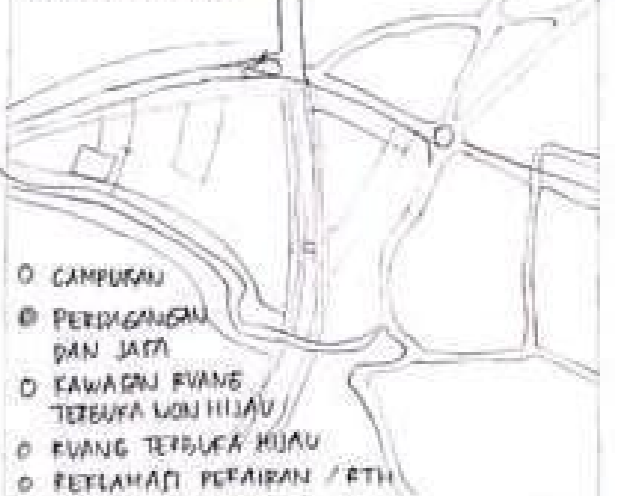 CAMPURAN
PERDAGANGAN
DAN JASA
KAWASAN RUANG
TERBUKA NON HIJAU
RUANG TERBUKA HIJAU
REKLAMASI PERAIRAN / RTH